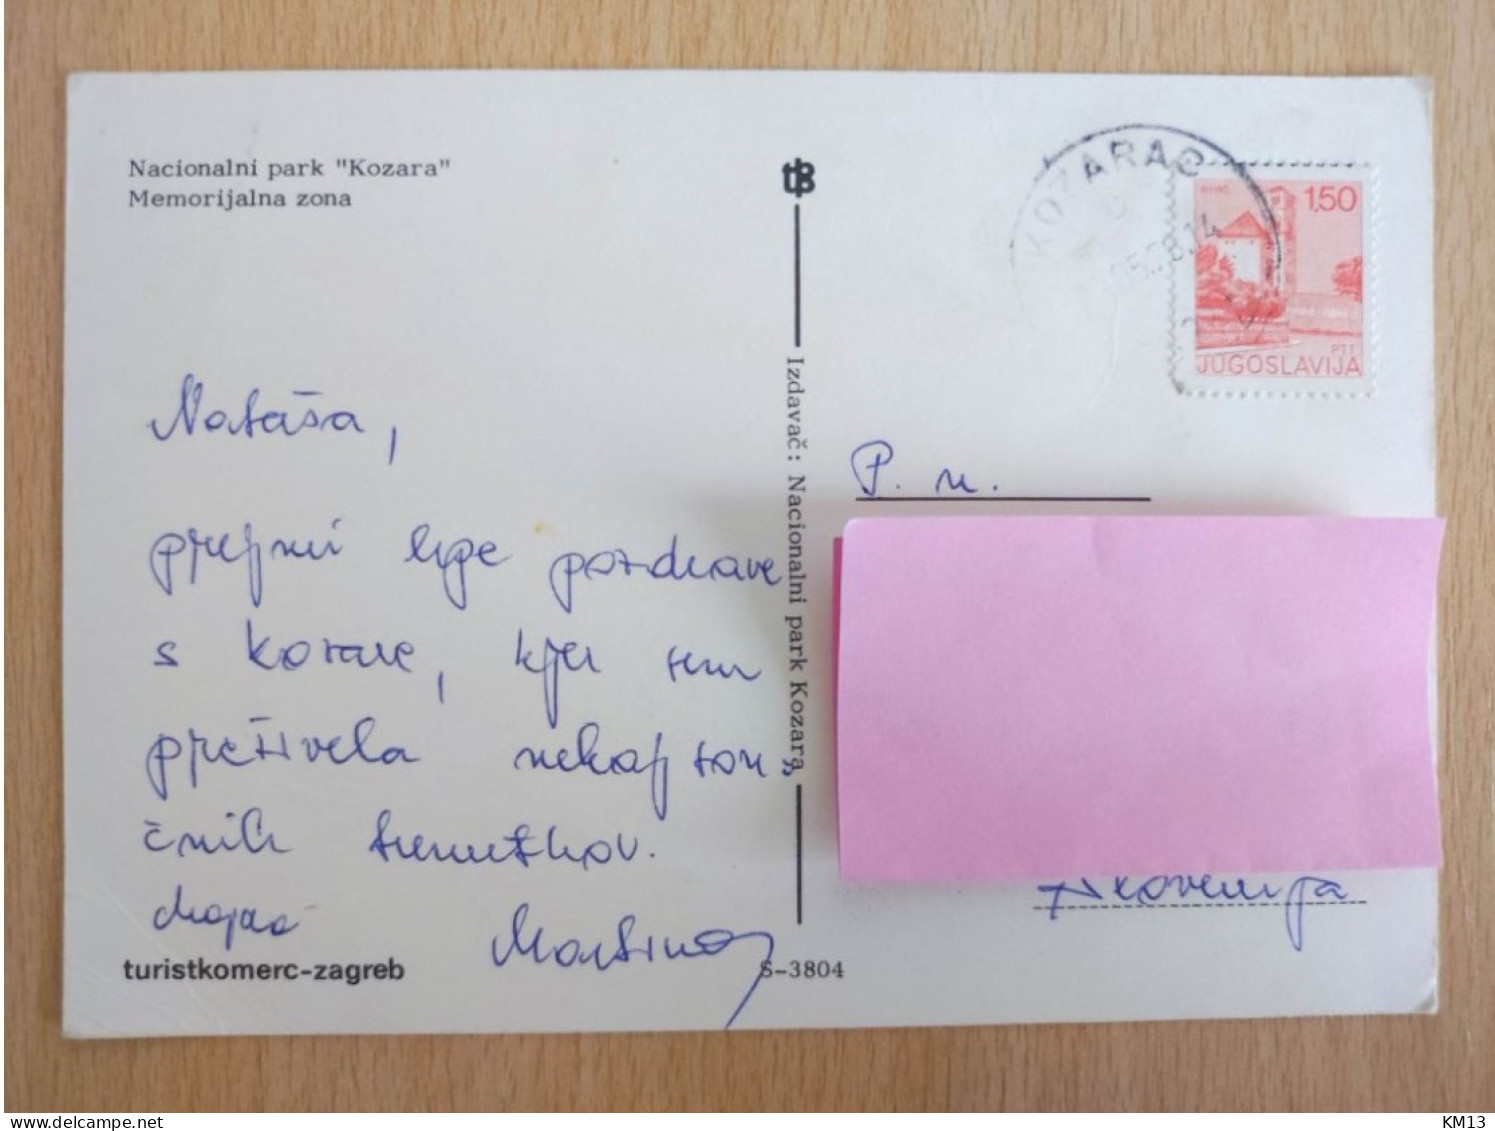 Nacionalni park "Kozara"
Memorijalna zona
Nataša,
prejmi lepe pozdrave
s kozare, kjer sem
preživela nekaj son
čnih trenutkov.
Mojca
Martina
turistkomerc-zagreb
Izdavač: Nacionalni park Kozara,
S-3804
KOZARAC
1,50
PTT
JUGOSLAVIJA
P. n.
Slovenija
delcampe.net
KM13